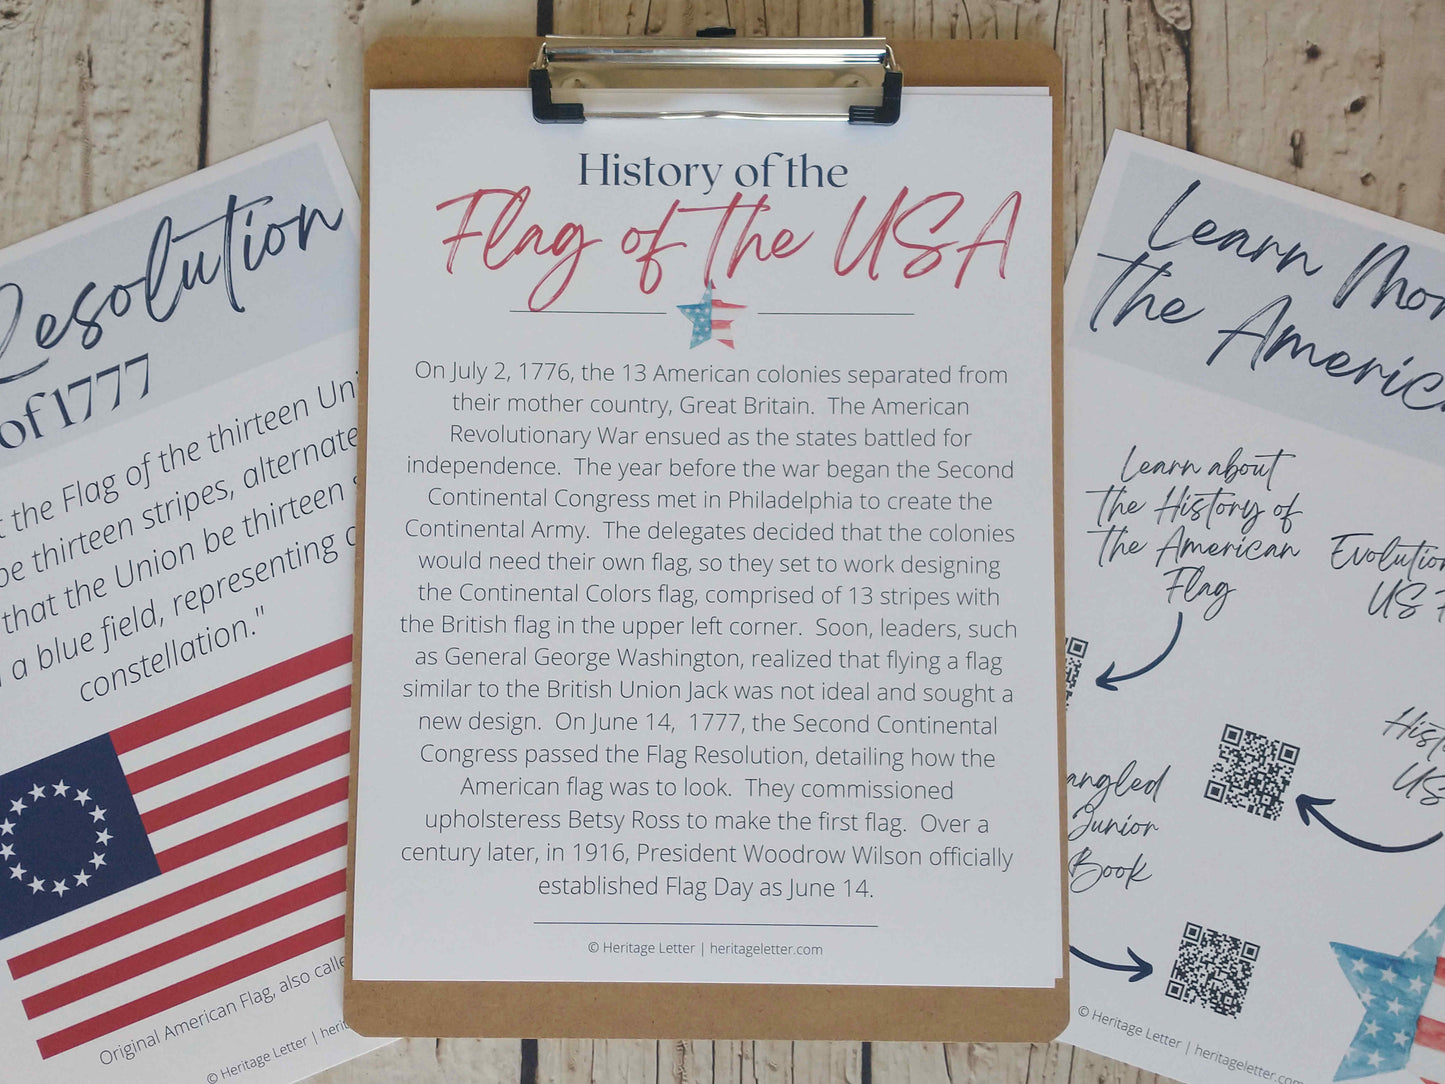 Resolution
of 1777
the Flag of the thirteen
be thirteen stripes, alternate
that the Union be thirteen
a blue field, representing
constellation."
Original American Flag, also called
© Heritage Letter |
History of the
Flag of the USA
On July 2, 1776, the 13 American colonies separated from
their mother country, Great Britain. The American
Revolutionary War ensued as the states battled for
independence. The year before the war began the Second
Continental Congress met in Philadelphia to create the
Continental Army. The delegates decided that the colonies
would need their own flag, so they set to work designing
the Continental Colors flag, comprised of 13 stripes with
the British flag in the upper left corner. Soon, leaders, such
as General George Washington, realized that flying a flag
similar to the British Union Jack was not ideal and sought a
new design. On June 14, 1777, the Second Continental
Congress passed the Flag Resolution, detailing how the
American flag was to look. They commissioned
upholsteress Betsy Ross to make the first flag. Over a
century later, in 1916, President Woodrow Wilson officially
established Flag Day as June 14.
© Heritage Letter | heritageletter.com
Learn
the
Learn about
the History of
the American
Flag
Evolution
US
US
Junior
Book
© Heritage Letter | heritageletter.com